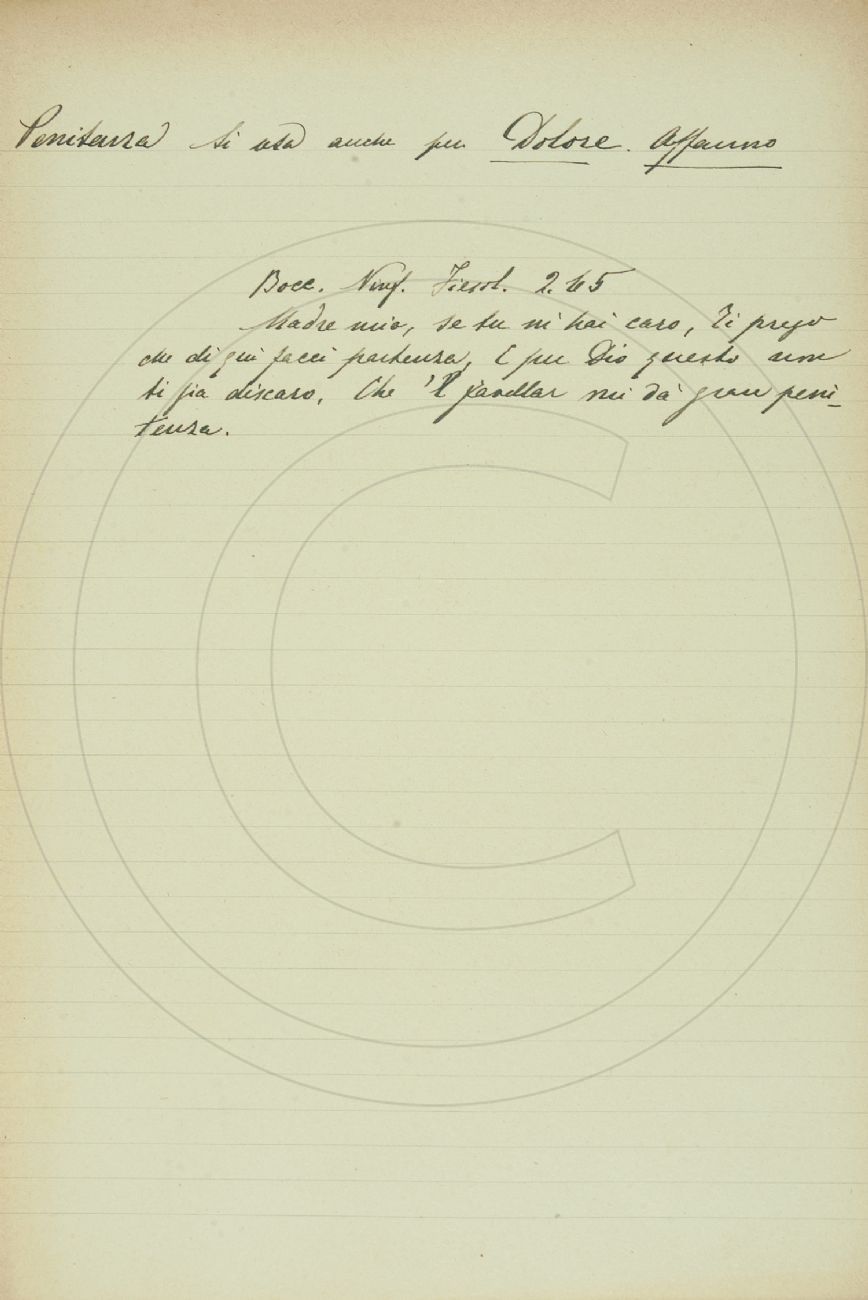 Penitenza si usa anche per Dolore. Affanno
Bocc. Ninf. Fiesol. 2. 45
Madre mia, se tu m'hai caro, Ti prego
che di qui facci partenza, E per Dio questo non
ti sia discaro, Che 'l favellar mi dà gran peni-
tenza.